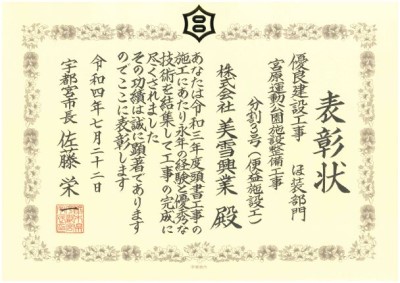 表彰状
優良建設工事　ほ装部門
宮原運動公園施設整備工事
分割3号（便益施設工）
株式会社　美雪興業　殿
あなたは令和三年度頭書工事の
施工にあたり永年の経験と優秀な
技術を結集して工事の完成に
尽くされました
その功績は誠に顕著であります
のでここに表彰します
令和四年七月二十二日
宇都宮市長　佐藤栄一